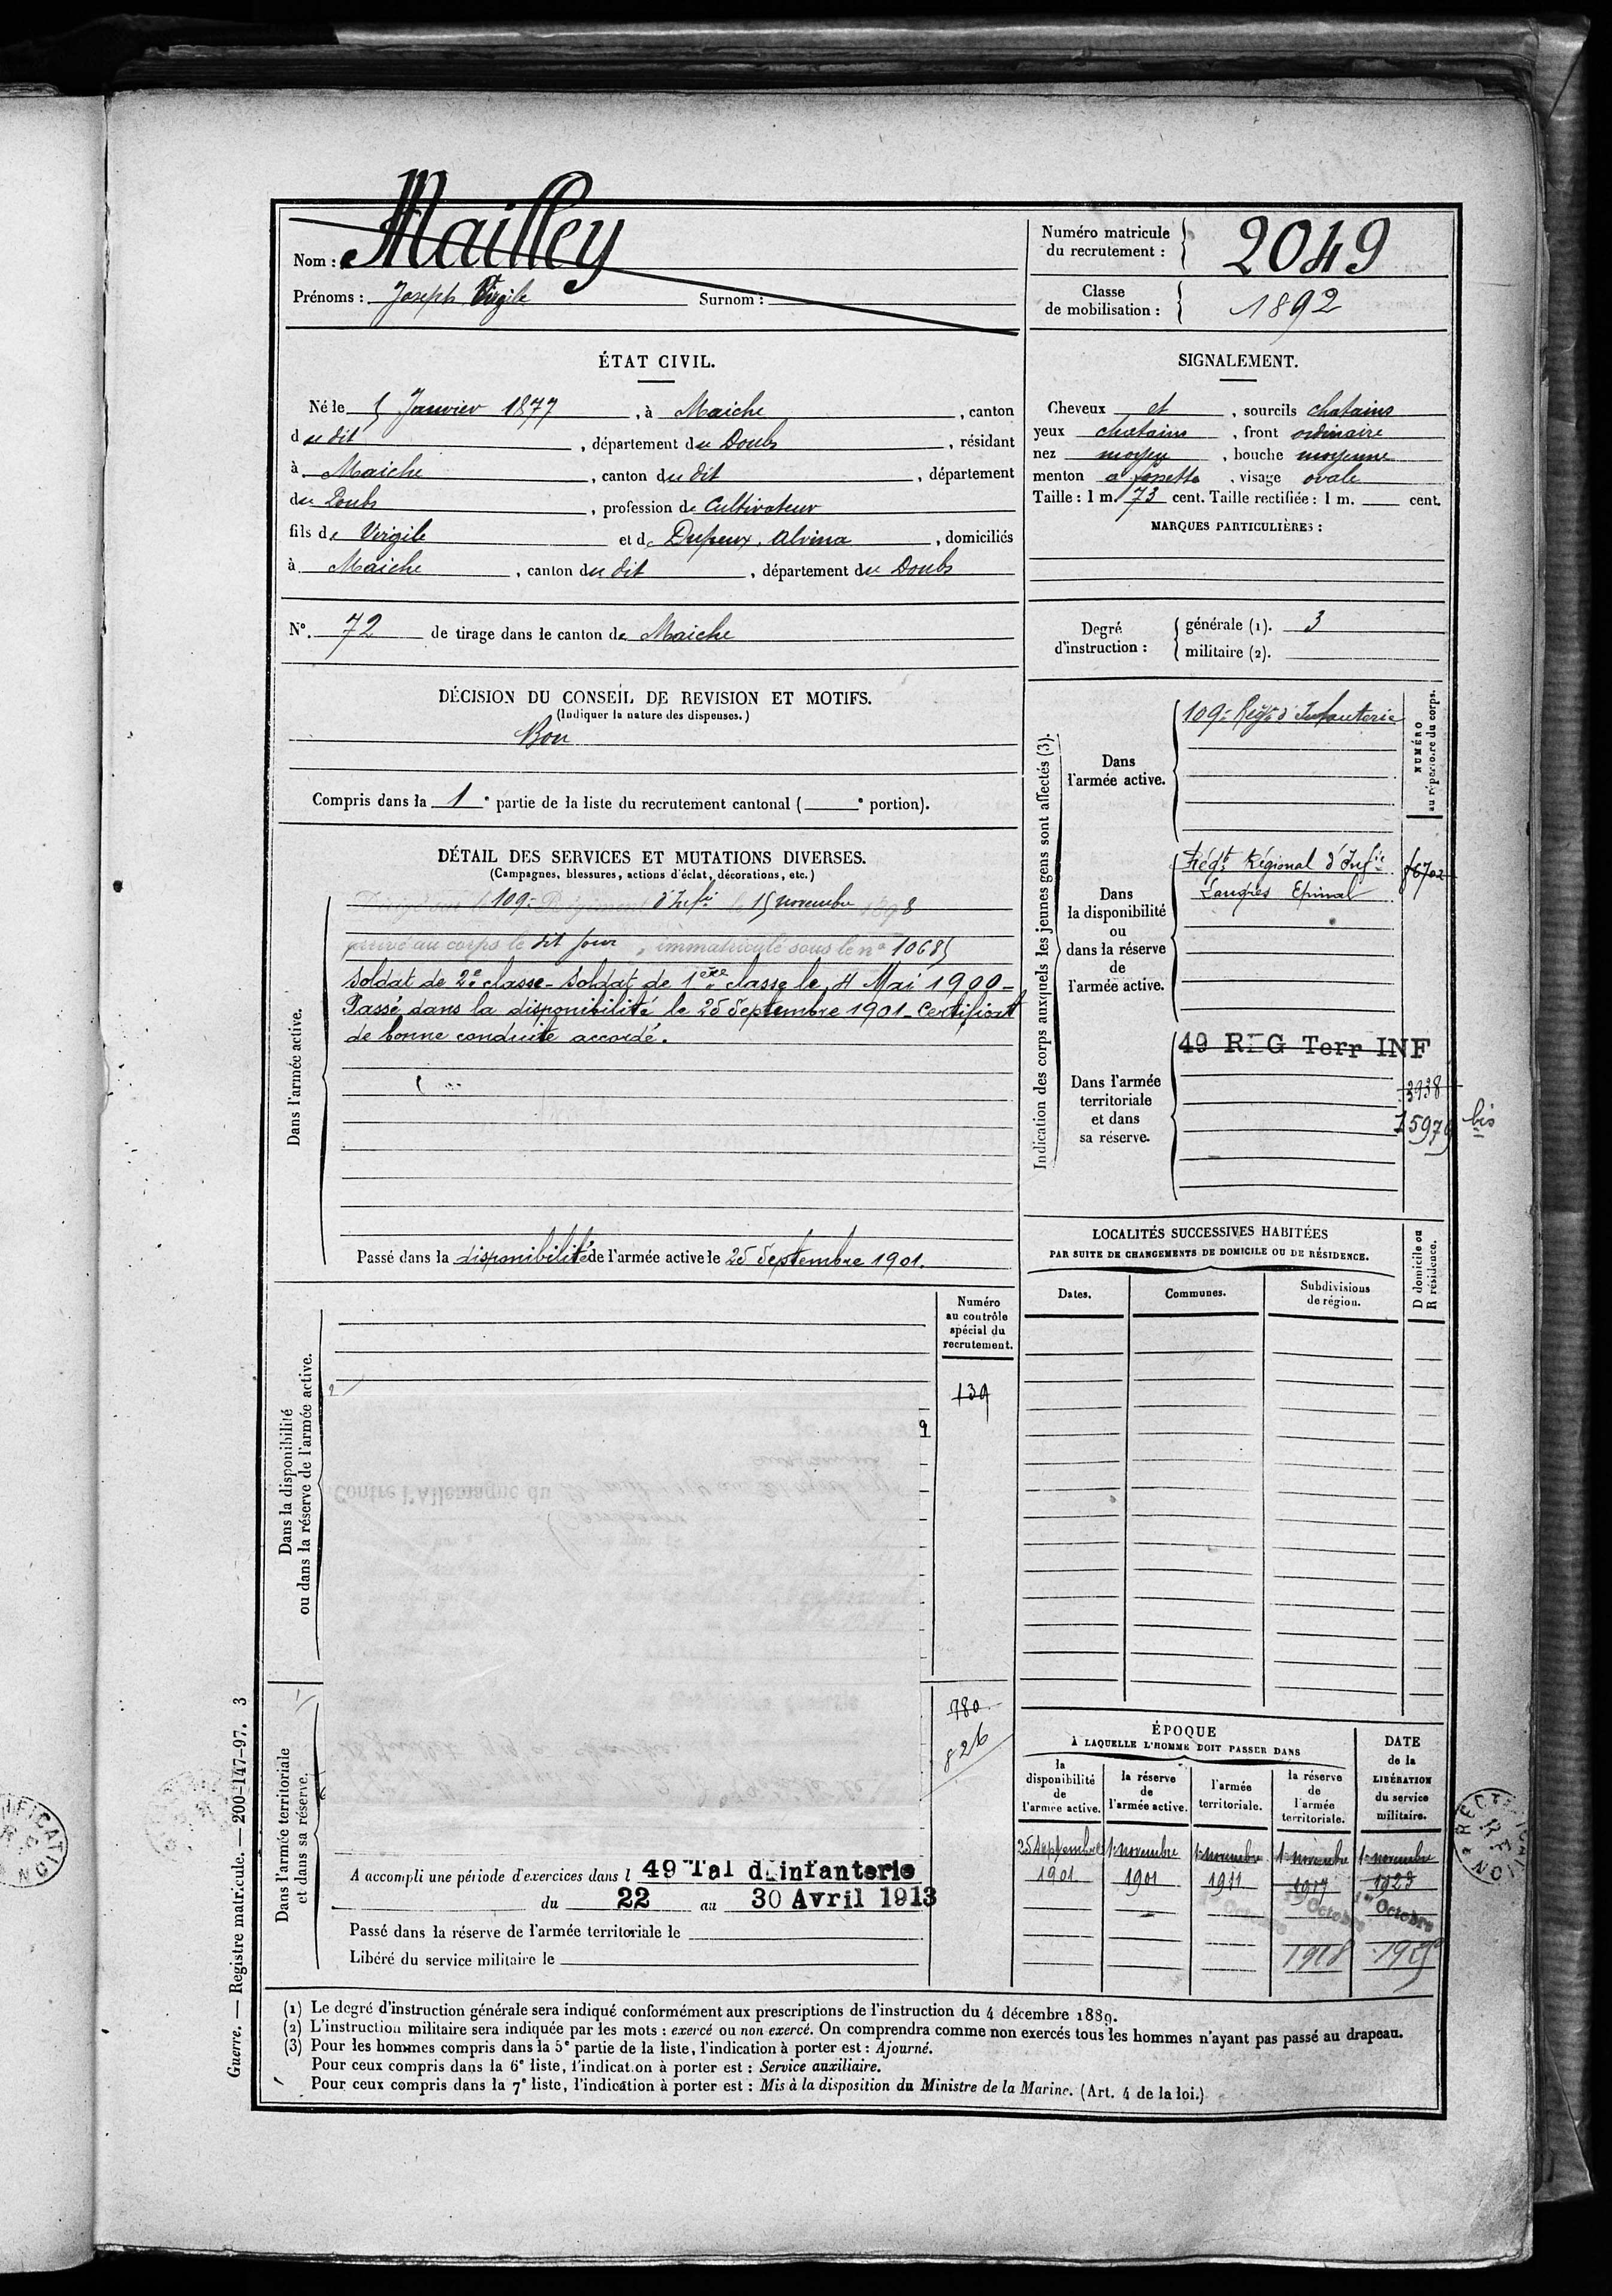 Nom : Mailley
Prénoms : Joseph Virgile Surnom :
Numéro matricule du recrutement : 2049
Classe de mobilisation : 1892
ÉTAT CIVIL.
Né le 5 Janvier 1877, à Maiche, canton
du dit, département du Doubs, résidant
à Maiche, canton du dit, département
du Doubs, profession de Cultivateur
fils de Virgile et de Dupeux, Alvina, domiciliés
à Maiche, canton du dit, département du Doubs
N°. 72 de tirage dans le canton de Maiche
SIGNALEMENT.
Cheveux et, sourcils chatains
yeux chatains, front ordinaire
nez moyen, bouche moyenne
menton a fossette, visage ovale
Taille : 1 m. 73 cent. Taille rectifiée : 1 m. cent.
MARQUES PARTICULIÈRES :
Degré d'instruction : générale (1). 3
militaire (2).
DÉCISION DU CONSEIL DE REVISION ET MOTIFS.
(Indiquer la nature des dispenses.)
Bon
Compris dans la 1e partie de la liste du recrutement cantonal ( e portion).
DÉTAIL DES SERVICES ET MUTATIONS DIVERSES.
(Campagnes, blessures, actions d'éclat, décorations, etc.)
Dans l'armée active.
109e Régiment d'Infie le 15 novembre 1898
arrivé au corps le dit jour, immatriculé sous le n° 10685
Soldat de 2e classe - Soldat de 1ère classe le 4 Mai 1900 -
Passé dans la disponibilité le 25 Septembre 1901 - Certificat
de bonne conduite accordé.
Passé dans la disponibilité de l'armée active le 25 Septembre 1901.
Indication des corps auxquels les jeunes gens sont affectés (3).
NUMÉRO
au répertoire du corps.
Dans
l'armée active.
109e Régt d'Infanterie
Dans
la disponibilité
ou
dans la réserve
de
l'armée active.
Régional d'Infie
Langres Epinal
Dans l'armée
territoriale
et dans
sa réserve.
49 REG Terr INF
3938
bis
LOCALITÉS SUCCESSIVES HABITÉES
PAR SUITE DE CHANGEMENTS DE DOMICILE OU DE RÉSIDENCE.
Dates.
Communes.
Subdivisions
de région.
D domicile ou
R résidence.
Dans la disponibilité
ou dans la réserve de l'armée active.
Numéro
au contrôle
spécial du
recrutement.
139
780
826
Dans l'armée territoriale
et dans sa réserve.
A accompli une période d'exercices dans l 49 Tal d'infanterie
du 22 au 30 Avril 1913
Passé dans la réserve de l'armée territoriale le
Libéré du service militaire le
ÉPOQUE
À LAQUELLE L'HOMME DOIT PASSER DANS
la
disponibilité
de
l'armée active.
la réserve
de
l'armée active.
l'armée
territoriale.
la réserve
de
l'armée
territoriale.
DATE
de la
LIBÉRATION
du service
militaire.
25 Septembre 1 novembre 1 novembre 1 novembre 1 novembre
1901 1901 1911 1917 1923
Octobre Octobre 1er Octobre
1918
(1) Le degré d'instruction générale sera indiqué conformément aux prescriptions de l'instruction du 4 décembre 1889.
(2) L'instruction militaire sera indiquée par les mots : exercé ou non exercé. On comprendra comme non exercés tous les hommes n'ayant pas passé au drapeau.
(3) Pour les hommes compris dans la 5e partie de la liste, l'indication à porter est : Ajourné.
Pour ceux compris dans la 6e liste, l'indication à porter est : Service auxiliaire.
Pour ceux compris dans la 7e liste, l'indication à porter est : Mis à la disposition du Ministre de la Marine. (Art. 4 de la loi.)
Guerre. — Registre matricule. — 200-147-97. 3